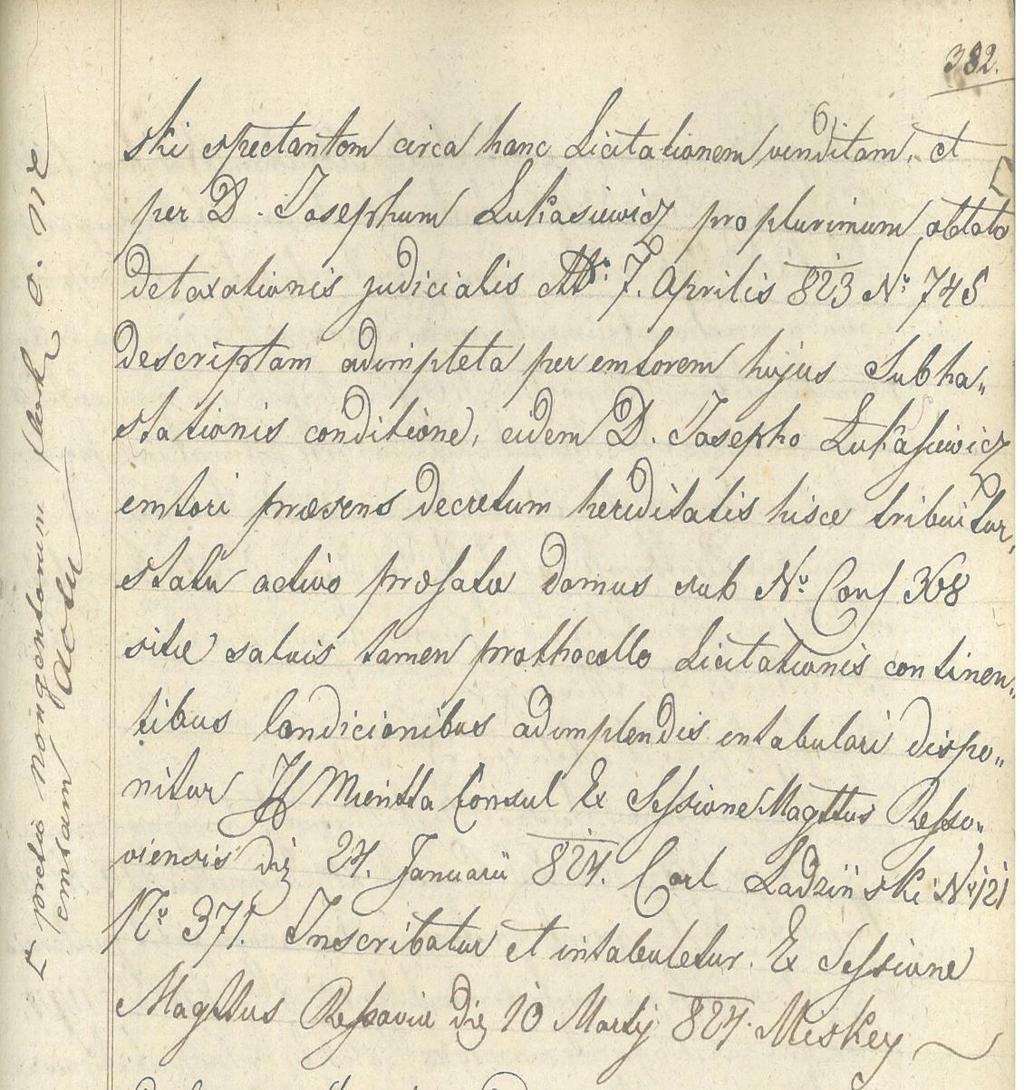 382.
ski spectantem circa hanc Licitationem venditam, et
per D. Josephum Lukasiewicz pro plurimum oblato
detaxationis judicialis 7. Aprilis 823 N° 745
descriptam adimpleta per emtorem hujus Subha„
stationis conditione, eidem D. Josepho Lukasiewicz
emtori præsens decretum hereditatis hisce tribuitur,
statu activo præfatæ domus sub N° Cons 368
sitæ salvis tamen prothocollo Licitationis continen„
tibus Condicionibus adimplendis intabulari dispo„
nitur Mientta Consul Ex Sessione Magttus Resso„
viensis die 24. Januarii 824. Carl Ladziński N° 121
N° 371. Inscribatur et intabuletur. Ex Sessione
Magttus Ressoviæ die 10 Martij 824. Miskey
pretio nongentorum
emtam